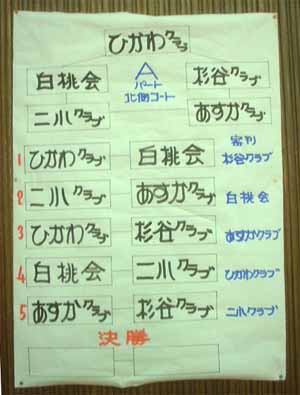 ひかわクラブ
白桃会 A 杉谷クラブ
パート
北側コート
二小クラブ あすかクラブ
審判
1 ひかわクラブ 白桃会 杉谷クラブ
2 二小クラブ あすかクラブ 白桃会
3 ひかわクラブ 杉谷クラブ あすかクラブ
4 白桃会 二小クラブ ひかわクラブ
5 あすかクラブ 杉谷クラブ 二小クラブ
決勝